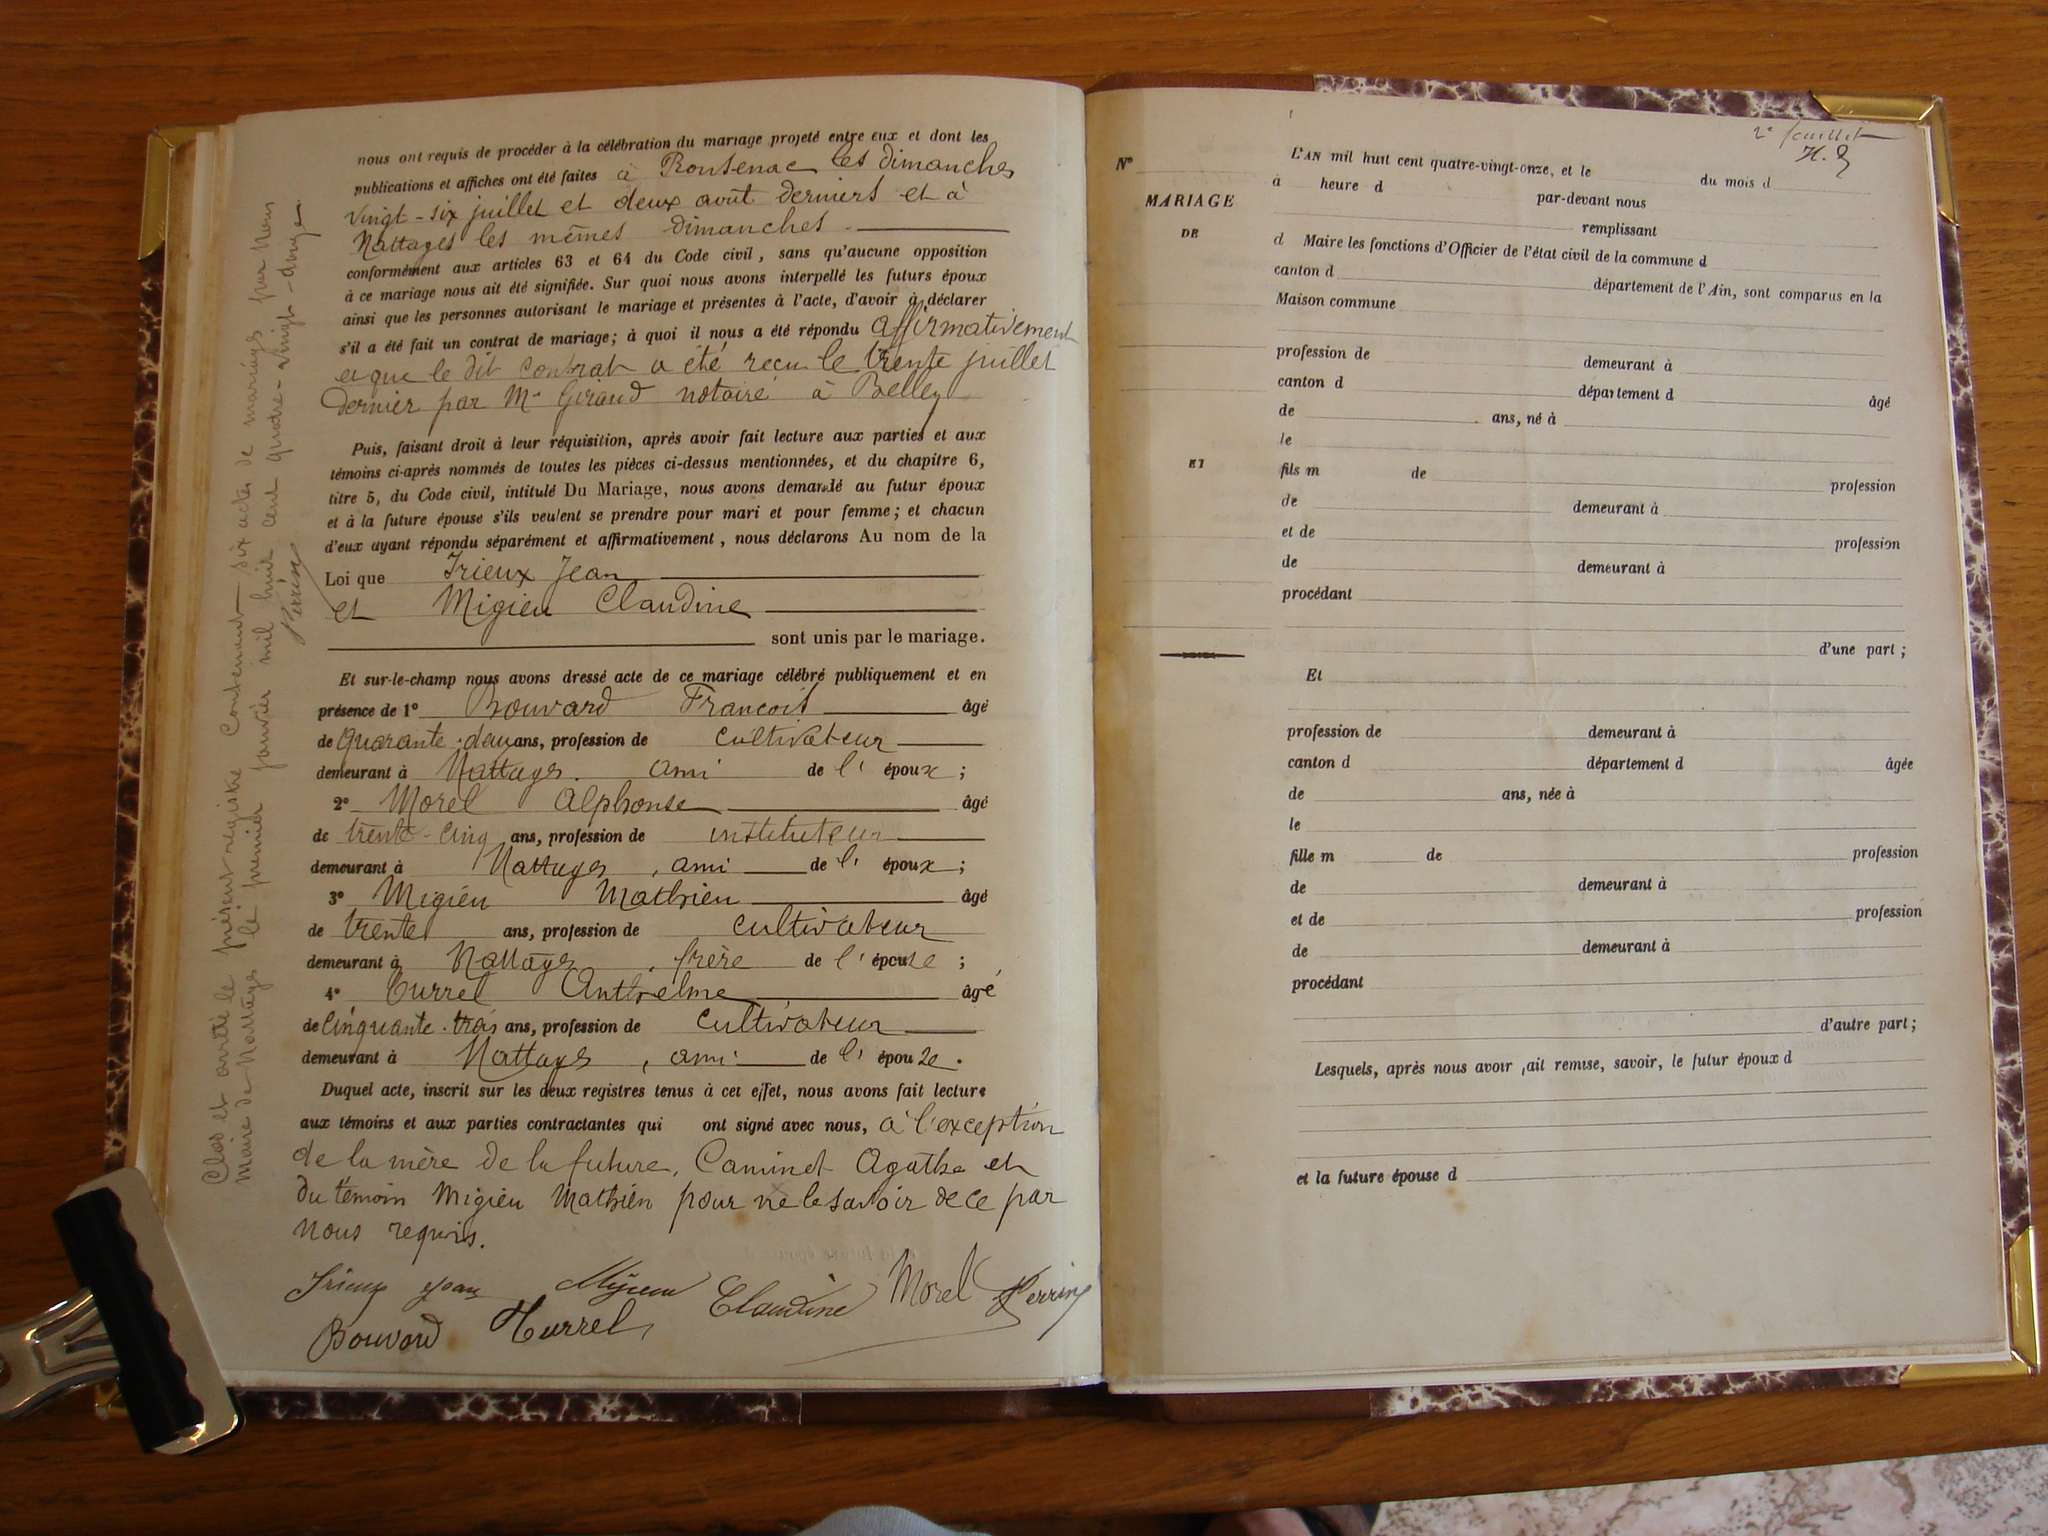 nous ont requis de procéder à la célébration du mariage projeté entre eux et dont les
publications et affiches ont été faites à Rousenac les dimanches
vingt-six juillet et deux août derniers et à
Nattages les mêmes dimanches
conformément aux articles 63 et 64 du Code civil, sans qu'aucune opposition
à ce mariage nous ait été signifiée. Sur quoi nous avons interpellé les futurs époux
ainsi que les personnes autorisant le mariage et présentes à l'acte, d'avoir à déclarer
s'il a été fait un contrat de mariage; à quoi il nous a été répondu affirmativement
et que le dit contrat a été reçu le trente juillet
dernier par Me Giraud notaire à Belley
Puis, faisant droit à leur réquisition, après avoir fait lecture aux parties et aux
témoins ci-après nommés de toutes les pièces ci-dessus mentionnées, et du chapitre 6,
titre 5, du Code civil, intitulé Du Mariage, nous avons demandé au futur époux
et à la future épouse s'ils veulent se prendre pour mari et pour femme; et chacun
d'eux ayant répondu séparément et affirmativement, nous déclarons Au nom de la
Loi que Trieux Jean
et Migieu Claudine
sont unis par le mariage.
Et sur-le-champ nous avons dressé acte de ce mariage célébré publiquement et en
présence de 1° Bouvard François âgé
de quarante-deux ans, profession de cultivateur
demeurant à Nattages. ami de l'époux;
2° Morel Alphonse âgé
de trente-cinq ans, profession de instituteur
demeurant à Nattages, ami de l'époux;
3° Migieu Mathieu âgé
de trente ans, profession de cultivateur
demeurant à Nattages, frère de l'épouse;
4° Turrel Anthelme âgé
de cinquante-trois ans, profession de cultivateur
demeurant à Nattages, ami de l'épouse.
Duquel acte, inscrit sur les deux registres tenus à cet effet, nous avons fait lecture
aux témoins et aux parties contractantes qui ont signé avec nous, à l'exception
de la mère de la future, Caminet Agathe et
du témoin Migieu Mathieu pour ne le savoir de ce par
nous requis.
Trieux Jean Migieu Claudine Morel Perrin
Bouvard Turrel
Clos et arrêté le présent registre contenant six actes de mariage par Nous
Maire de Nattages le premier janvier mil huit cent quatre-vingt-douze
Perrin
2e feuillet
N°
MARIAGE
DE
ET
L'AN mil huit cent quatre-vingt-onze, et le du mois d
à heure d par-devant nous
remplissant
d Maire les fonctions d'Officier de l'état civil de la commune d
canton d département de l'Ain, sont comparus en la
Maison commune
profession de demeurant à
canton d département d âgé
de ans, né à
le
fils m de profession
de demeurant à
et de profession
de demeurant à
procédant
d'une part;
Et
profession de demeurant à
canton d département d âgée
de ans, née à
le
fille m de profession
de demeurant à
et de profession
de demeurant à
procédant
d'autre part;
Lesquels, après nous avoir fait remise, savoir, le futur époux d
et la future épouse d